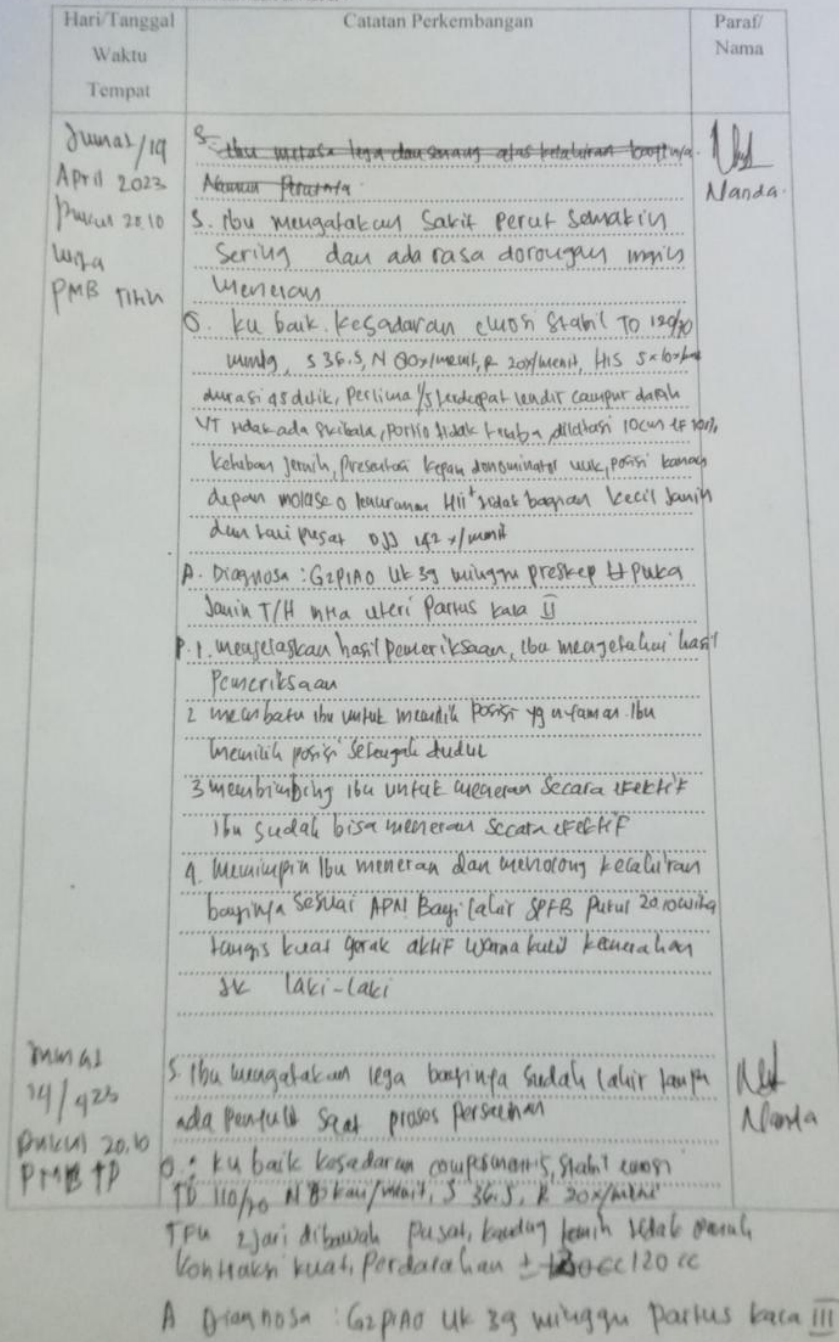 Hari/Tanggal
Waktu
Tempat
Catatan Perkembangan
Paraf/
Nama
Jumat/14
April 2023
Pukul 20.10
wita
PMB
S. Ibu merasa lega dan senang atas kelahiran bayinya.
Namun
Nanda.
S. Ibu mengatakan Sakit perut Semakin
Sering dan ada rasa dorongan ingin
meneran
O. ku baik. Kesadaran emosi Stabil TD 120/70
mmHg, S 36.5, N 80x/menit, R 20x/menit, HIS 5x10x
durasi 45 detik, Perlima 1/5 terdapat lendir campur darah
VT tidak ada skibala, portio tidak teraba, dilatasi 10cm EF 100%
Ketuban jernih, presentasi kepala denominator uuk, posisi kanan
depan molase 0 HIII+ tidak bagian kecil Janin
dan tali pusat DJJ 142 x/menit
A. Diagnosa : G2P1A0 UK 39 minggu preskep U puka
Janin T/H intra uteri Partus kala II
P. 1. menjelaskan hasil pemeriksaan, ibu mengetahui hasil
Pemeriksaan
2 membatu ibu untuk memilih posisi yg nyaman. Ibu
memilih posisi setengah duduk
3 membimbing ibu untuk meneran secara efektif
Ibu sudah bisa meneran secara efektif
4. Memimpin Ibu meneran dan menolong kelahiran
bayinya sesuai APN Bayi lahir SPTB Pukul 20.10 wita
tangis kuat gerak aktif warna kulit kemerahan
JK laki-laki
Jumat
14/423
Pukul 20.10
PMB TP
S. Ibu mengatakan lega bayinya sudah lahir tanpa
ada penyulit saat proses persalinan
Nanda
O : ku baik kesadaran composmentis, stabil emosi
TD 110/70 N kali/menit, S 36.5, R 20x/menit
TFU 2 jari dibawah pusat, kandung kemih tidak penuh
Kontraksi kuat, Perdarahan ± 120 cc
A Diagnosa : G2P1A0 UK 39 minggu partus kala III